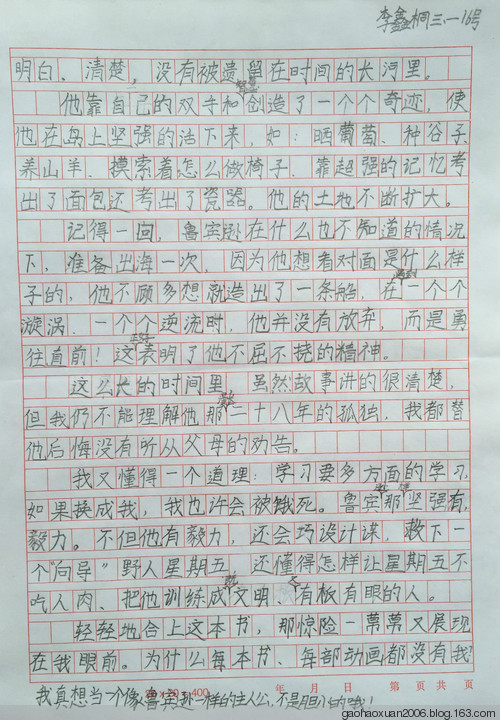 李鑫桐三.一16号
明白、清楚，没有被遗留在时间的长河里。
他靠自己的双手和智慧创造了一个个奇迹，使
他在岛上坚强的活下来，如：晒葡萄、种谷子、
养山羊、摸索着怎么做椅子、靠超强的记忆考
出了面包还考出了瓷器。他的土地不断扩大。
记得一回，鲁宾逊在什么也不知道的情况
下，准备出海一次，因为他想看对面是什么样
子的，他不顾多想就造出了一条船，在遇到一个个
漩涡，一个个逆流时，他并没有放弃，而是勇
往直前！这正好表明了他不屈不挠的精神。
这么长的时间里，虽然故事讲的很清楚，
但我们不能理解他那漫长二十八年的孤独，我都替
他后悔没有听从父母的劝告。
我又懂得一个道理：学习要多方面的学习，
如果换成我，我也许会被饿死。鲁宾那坚强有
毅力。不但他有毅力，还会巧设计谋，救下一
个“向导”野人星期五，还懂得怎样让星期五不
吃人肉、把他训练成文明、有板有眼的人。
轻轻地合上这本书，那惊险一幕幕又展现
在我眼前。为什么每本书、每部动画都没有我？
20×20=400 年 月 日 第 页 共 页
我真想当一个像鲁宾逊一样的主人公，不是胆小的我！
gaohaoxuan2006.blog.163.com